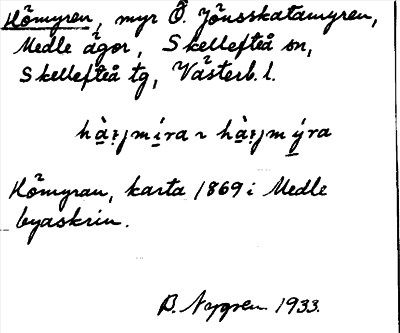 Hömyren, myr Ö. Jönsskatamyren,
Medle ägor, Skellefteå sn,
Skellefteå tg, Västerb. l.
Hömyran, karta 1869 i Medle
byaskrin.
B. Nygren 1933.